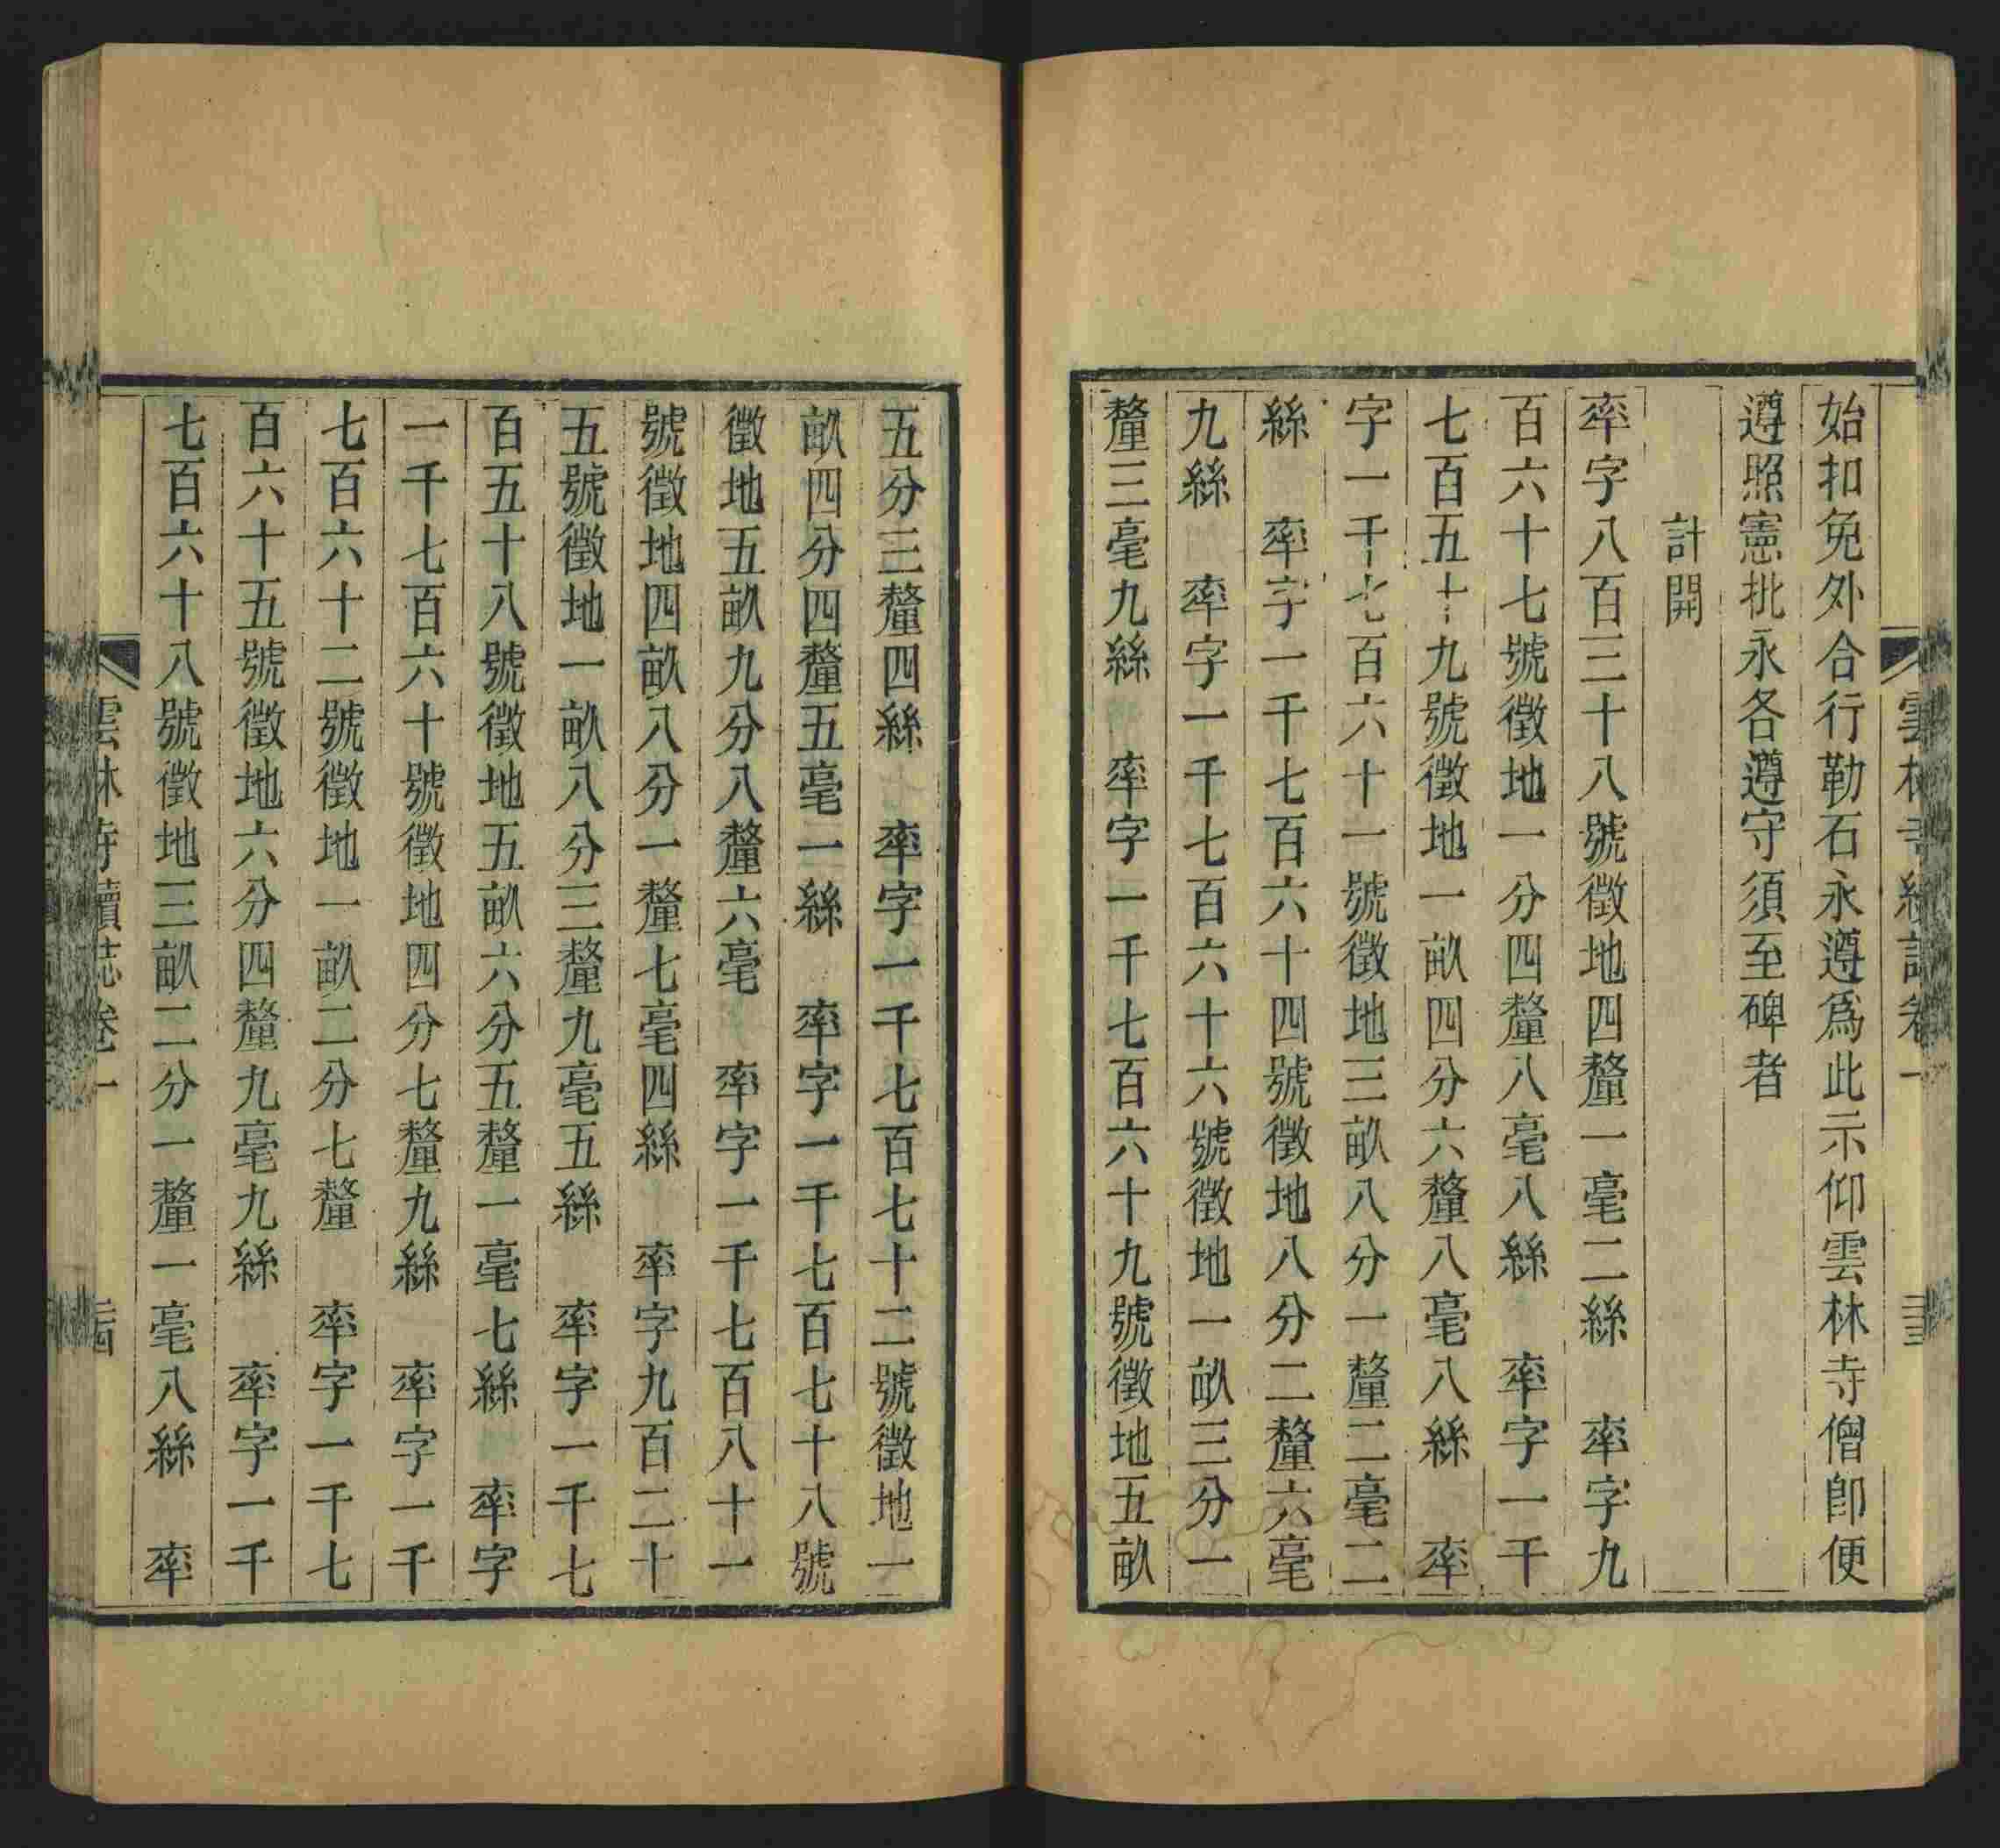 始扣免外合行勒石永遵爲此示仰雲林寺僧卽便
遵照憲批永各遵守須至碑者
計開
率字八百三十八號徵地四釐一毫二絲　率字九
百六十七號徵地一分四釐八毫八絲　率字一千
七百五十九號徵地一畝四分六釐八毫八絲　率
字一千七百六十一號徵地三畝八分一釐二毫二
絲　率字一千七百六十四號徵地八分二釐六毫
九絲　率字一千七百六十六號徵地一畝三分一
釐三毫九絲　率字一千七百六十九號徵地五畝
五分三釐四絲　率字一千七百七十二號徵地一
畝四分四釐五毫一絲　率字一千七百七十八號
徵地五畝九分八釐六毫　率字一千七百八十一
號徵地四畝八分一釐七毫四絲　率字九百二十
五號徵地一畝八分三釐九毫五絲　率字一千七
百五十八號徵地五畝六分五釐一毫七絲　率字
一千七百六十號徵地四分七釐九絲　率字一千
七百六十二號徵地一畝二分七釐　率字一千七
百六十五號徵地六分四釐九毫九絲　率字一千
七百六十八號徵地三畝二分一釐一毫八絲　率
雲林寺續誌卷一